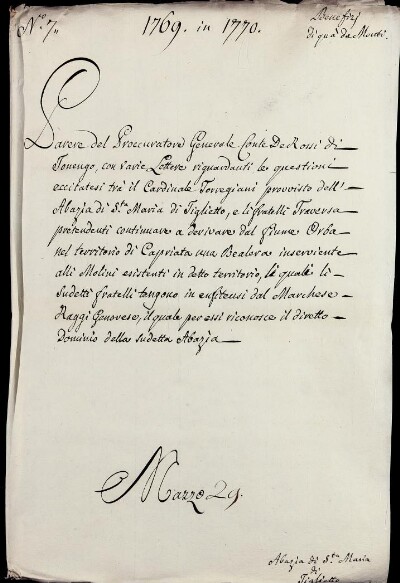 N.º 7.
1769. in 1770.
Benefizj
di quà da Monti.
Parere del Proccuratore Generale Conte DeRossi di
Tonengo, con varie Lettere riguardanti le questioni
eccitatesi trè il Cardinale Torregiani provvisto dell'
Abazia di S.ta Maria di Tiglietto, e li fratelli Traversa
pretendenti continuare a derivare dal fiume Orba
nel territorio di Capriata una Bealera inserviente
alli Molini esistenti in detto territorio, la quale li
sudetti fratelli tengono in enfiteusi dal Marchese
Raggi Genovese, il quale per essi riconosce il diretto
Dominio della sudetta Abazia
Mazzo 29.
Abazia di S.ta Maria
di
Tiglietto